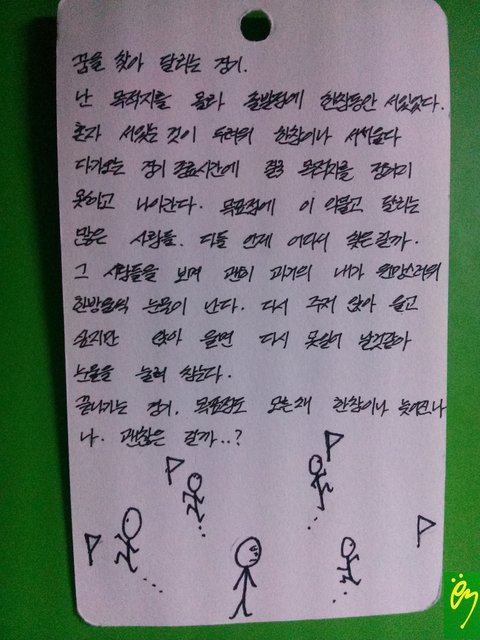 꿈을 찾아 달리는 경기.
난 목적지를 몰라 출발점에 한참동안 서있었다.
혼자 서있는 것이 두려워 한참이나 서성였다
다가오는 경기 종료시간에 결국 목적지를 정하지
못하고 나아간다. 목표점에 이 악물고 달리는
많은 사람들. 다들 언제 어디서 찾은걸까.
그 사람들을 보며 괜히 과거의 내가 원망스러워
한방울씩 눈물이 난다. 다시 주저 앉아 울고
싶지만 앉아 울면 다시 못일어 날것같아
눈물을 눌러 참는다.
끝나가는 경기. 목표점도 모른채 한참이나 늦어진 나
나. 괜찮은 걸까..?